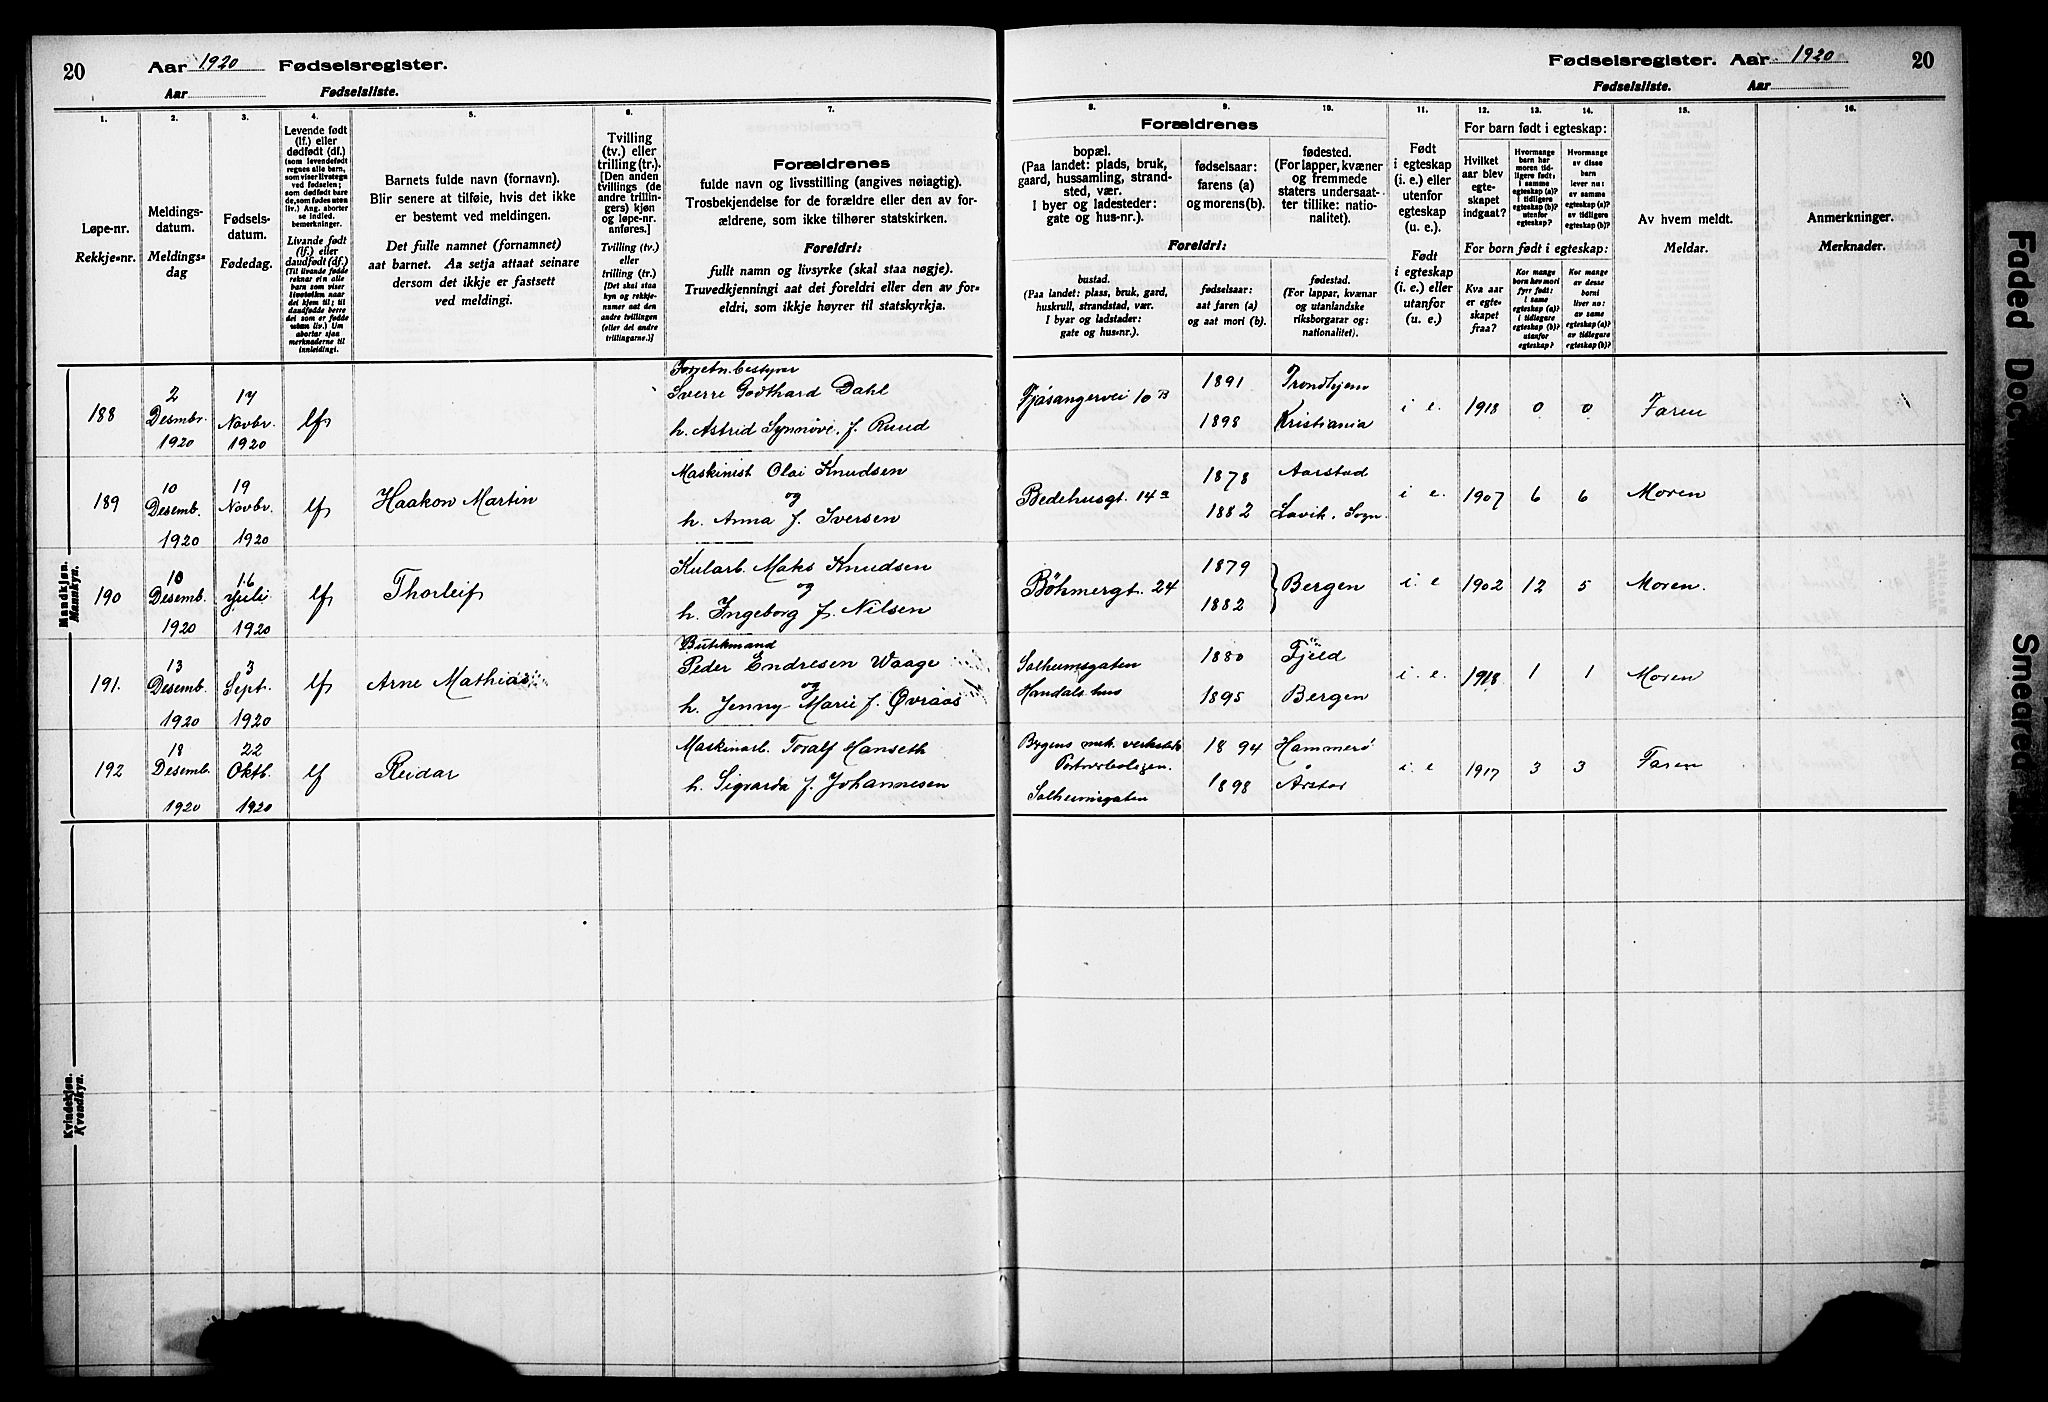 20
Aar 1920 Fødselsregister.
Aar Fødselsliste.
Fødselsregister. Aar 1920
20
Fødselsliste. Aar
1.
Løpe-nr.
Rekkje-nr.
2.
Meldings-
datum.
Meldings-
dag
3.
Fødsels-
datum.
Fødedag.
4.
Levende født
(lf.) eller
dødfødt (df.)
(som levendefødt
regnes alle barn,
som viser livstegn
ved fødselen;
som dødfødt bare
de, som fødes uten
liv.) Ang. aborter
se indled.
bemerkninger.
Livande født
(lf.) eller
daudfødt (df.)
5.
Barnets fulde navn (fornavn).
Blir senere at tilføie, hvis det ikke
er bestemt ved meldingen.
Det fulle namnet (fornamnet)
aat barnet. Aa setja attaat seinare
dersom det ikkje er fastsett
ved meldingi.
6.
Tvilling
(tv.) eller
trilling (tr.)
[Den anden
tvillings (de
andre trillin-
gers) kjøn
og løpe-nr.
anføres.]
Tvilling (tv.)
eller
trilling (tr.)
[Det skal staa
kyn og rekkje-
numer aat den
andre tvillingen
(eller dei andre
trillingarne.)]
7.
Forældrenes
fulde navn og livsstilling (angives nøiagtig).
Trosbekjendelse for de forældre eller den av for-
ældrene, som ikke tilhører statskirken.
Foreldri:
fullt namn og livsyrke (skal staa nøgje).
Truvedkjenningi aat dei foreldri eller den av for-
eldri, som ikkje høyrer til statskyrkja.
8.
9.
10.
Forældrenes
bopæl.
(Paa landet: plads, bruk,
gaard, hussamling, strand-
sted, vær.
I byer og ladesteder:
gate og hus-nr.).
fødselsaar:
farens (a)
og morens (b).
fødested.
(For lapper, kvæner
og fremmede
staters undersaat-
ter tillike: natio-
nalitet).
Foreldri:
bustad.
(Paa landet: plass, bruk, gard,
huskrull, strandstad, vær.
I byar og ladstader:
gate og hus-nr.).
fødselsaar:
aat faren (a)
og aat mori (b).
fødestad.
(For lappar, kvænar
og utanlandske
riksborgarar og:
nationalitet).
11.
Født
i egteskap
(i. e.) eller
utenfor
egteskap
(u. e.).
Født
i egteskap
(i. e.) eller
utanfor
egteskap
(u. e.).
12.
13.
14.
For barn født i egteskap:
Hvilket
aar blev
egte-
skapet
indgaat?
Hvormange
barn har
moren tid-
ligere født:
i samme
egteskap (a)?
i tidligere
egteskap (b)?
utenfor
egteskap?
Hvormange
av disse
barn
lever nu:
av samme
egteskap (a)?
av tidligere
egteskap (b)?
For born født i egteskap:
Kva aar
er egte-
skapet
fraa?
Kor mange
born hev mori
fyrr født:
i same
egteskap (a)?
i tidlegare
egteskap (b)?
utanfor
egteskap?
Kor mange
av desse
borni
liver nu:
av same
egteskap (a)?
av tidlegare
egteskap (b)?
15.
Av hvem meldt.
Meldar.
16.
Anmerkninger.
Merknader.
Mandkjøn.
Mannkyn.
188
2
Desmbr.
1920
17
Novbr.
1920
lf
Forretn.bestyrer
Sverre Godthard Dahl
h. Astrid Synnöve f. Ruud
Fjøsangervei 10 B
1891
1898
Trondhjem
Kristiania
i. e.
1918
0
0
Faren
189
10
Desemb.
1920
19
Novbr.
1920
lf
Haakon Martin
Maskinist Olai Knudsen
og
h. Anna f. Iversen
Bedehusgt. 14 a
1878
1882
Aarstad
Lavik. Sogn.
i. e.
1907
6
6
Moren
190
10
Desemb.
1920
16
Juli
1920
lf
Thorleif
Kularb. Maks Knudsen
og
h. Ingeborg f. Nilsen
Böhmergt. 24
1879
1882
Bergen
i. e
1902
12
5
Moren.
191.
13
Desemb.
1920
3
Sept.
1920
lf
Arne Mathias
Butikmand
Peder Endresen Waage
og
h. Jenny Marie f. Øvraas
Solheimsgaten
Handals hus
1880
1895
Fjeld
Bergen
i. e.
1918
1
1
Moren
192
18
Desemb.
1920
22
Oktb.
1920
lf
Reidar
Maskinarb. Toralf Hanseth
h. Sigvarda f. Johannesen
Bergens mek. verksted
Portnerboligen.
Solheimsgaten
1894
1898
Hammerö
Årstad
i. e
1917
3
3
Faren
Kvindekjøn.
Kvendkyn.
Faded Doc
Smeared